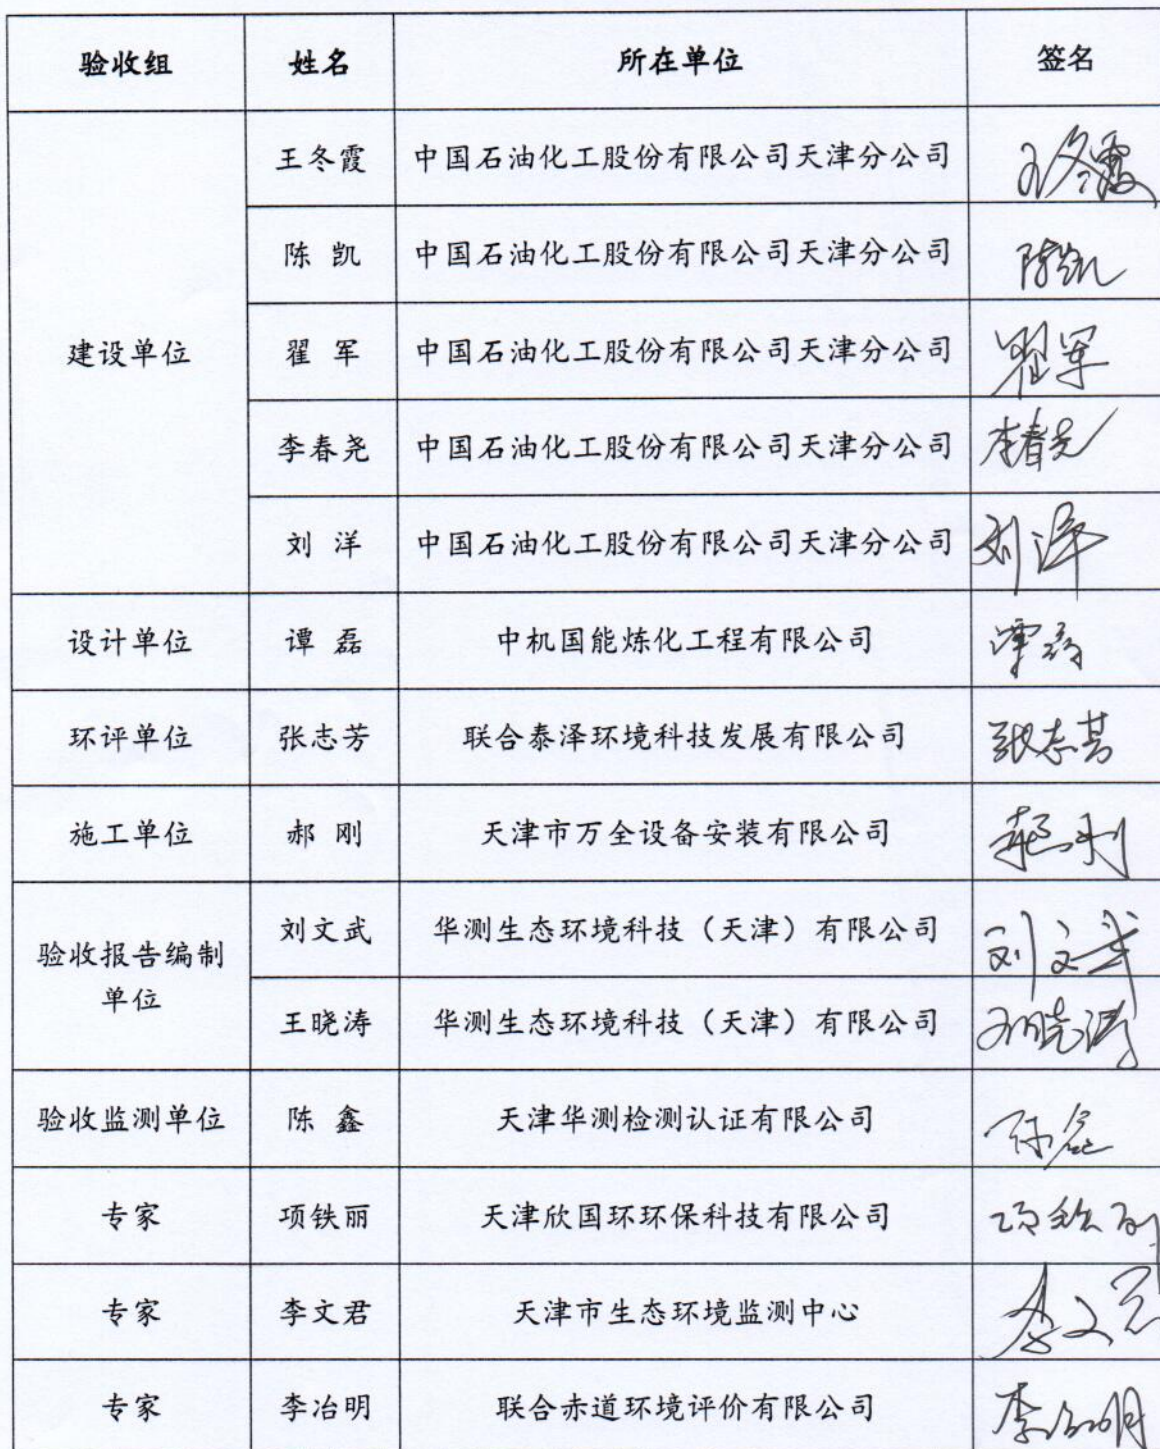 验收组 姓名 所在单位 签名
王冬霞 中国石油化工股份有限公司天津分公司 王冬霞
陈 凯 中国石油化工股份有限公司天津分公司 陈凯
建设单位 翟 军 中国石油化工股份有限公司天津分公司 翟军
李春尧 中国石油化工股份有限公司天津分公司 李春尧
刘 洋 中国石油化工股份有限公司天津分公司 刘洋
设计单位 谭 磊 中机国能炼化工程有限公司 谭磊
环评单位 张志芳 联合泰泽环境科技发展有限公司 张志芳
施工单位 郝 刚 天津市万全设备安装有限公司 郝刚
验收报告编制
单位
刘文武 华测生态环境科技（天津）有限公司 刘文武
王晓涛 华测生态环境科技（天津）有限公司 王晓涛
验收监测单位 陈 鑫 天津华测检测认证有限公司 陈鑫
专家 项铁丽 天津欣国环环保科技有限公司 项铁丽
专家 李文君 天津市生态环境监测中心 李文君
专家 李冶明 联合赤道环境评价有限公司 李冶明